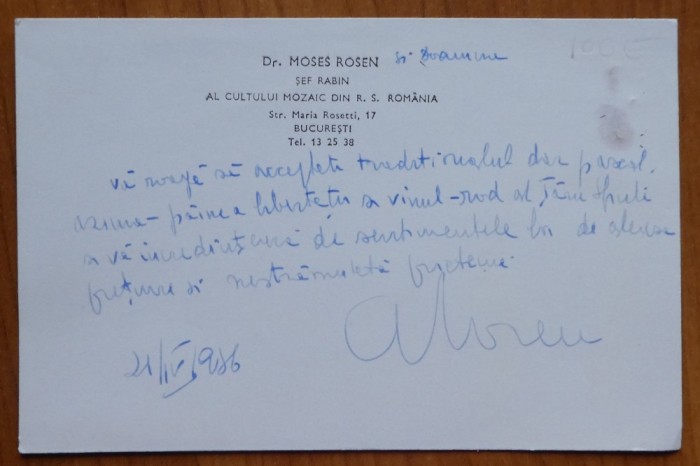 Dr. MOSES ROSEN și Doamna
100 E
ȘEF RABIN
AL CULTULUI MOZAIC DIN R. S. ROMÂNIA
Str. Maria Rosetti, 17
BUCUREȘTI
Tel. 13 25 38
vă roagă să acceptați tradiționalul dar pascal,
azima - pâinea libertății și vinul - rod al Țării Sfinte
și vă încredințează de sentimentele lor de aleasă
prețuire și nestrămutată prietenie.
21/IV/1986
M Rosen